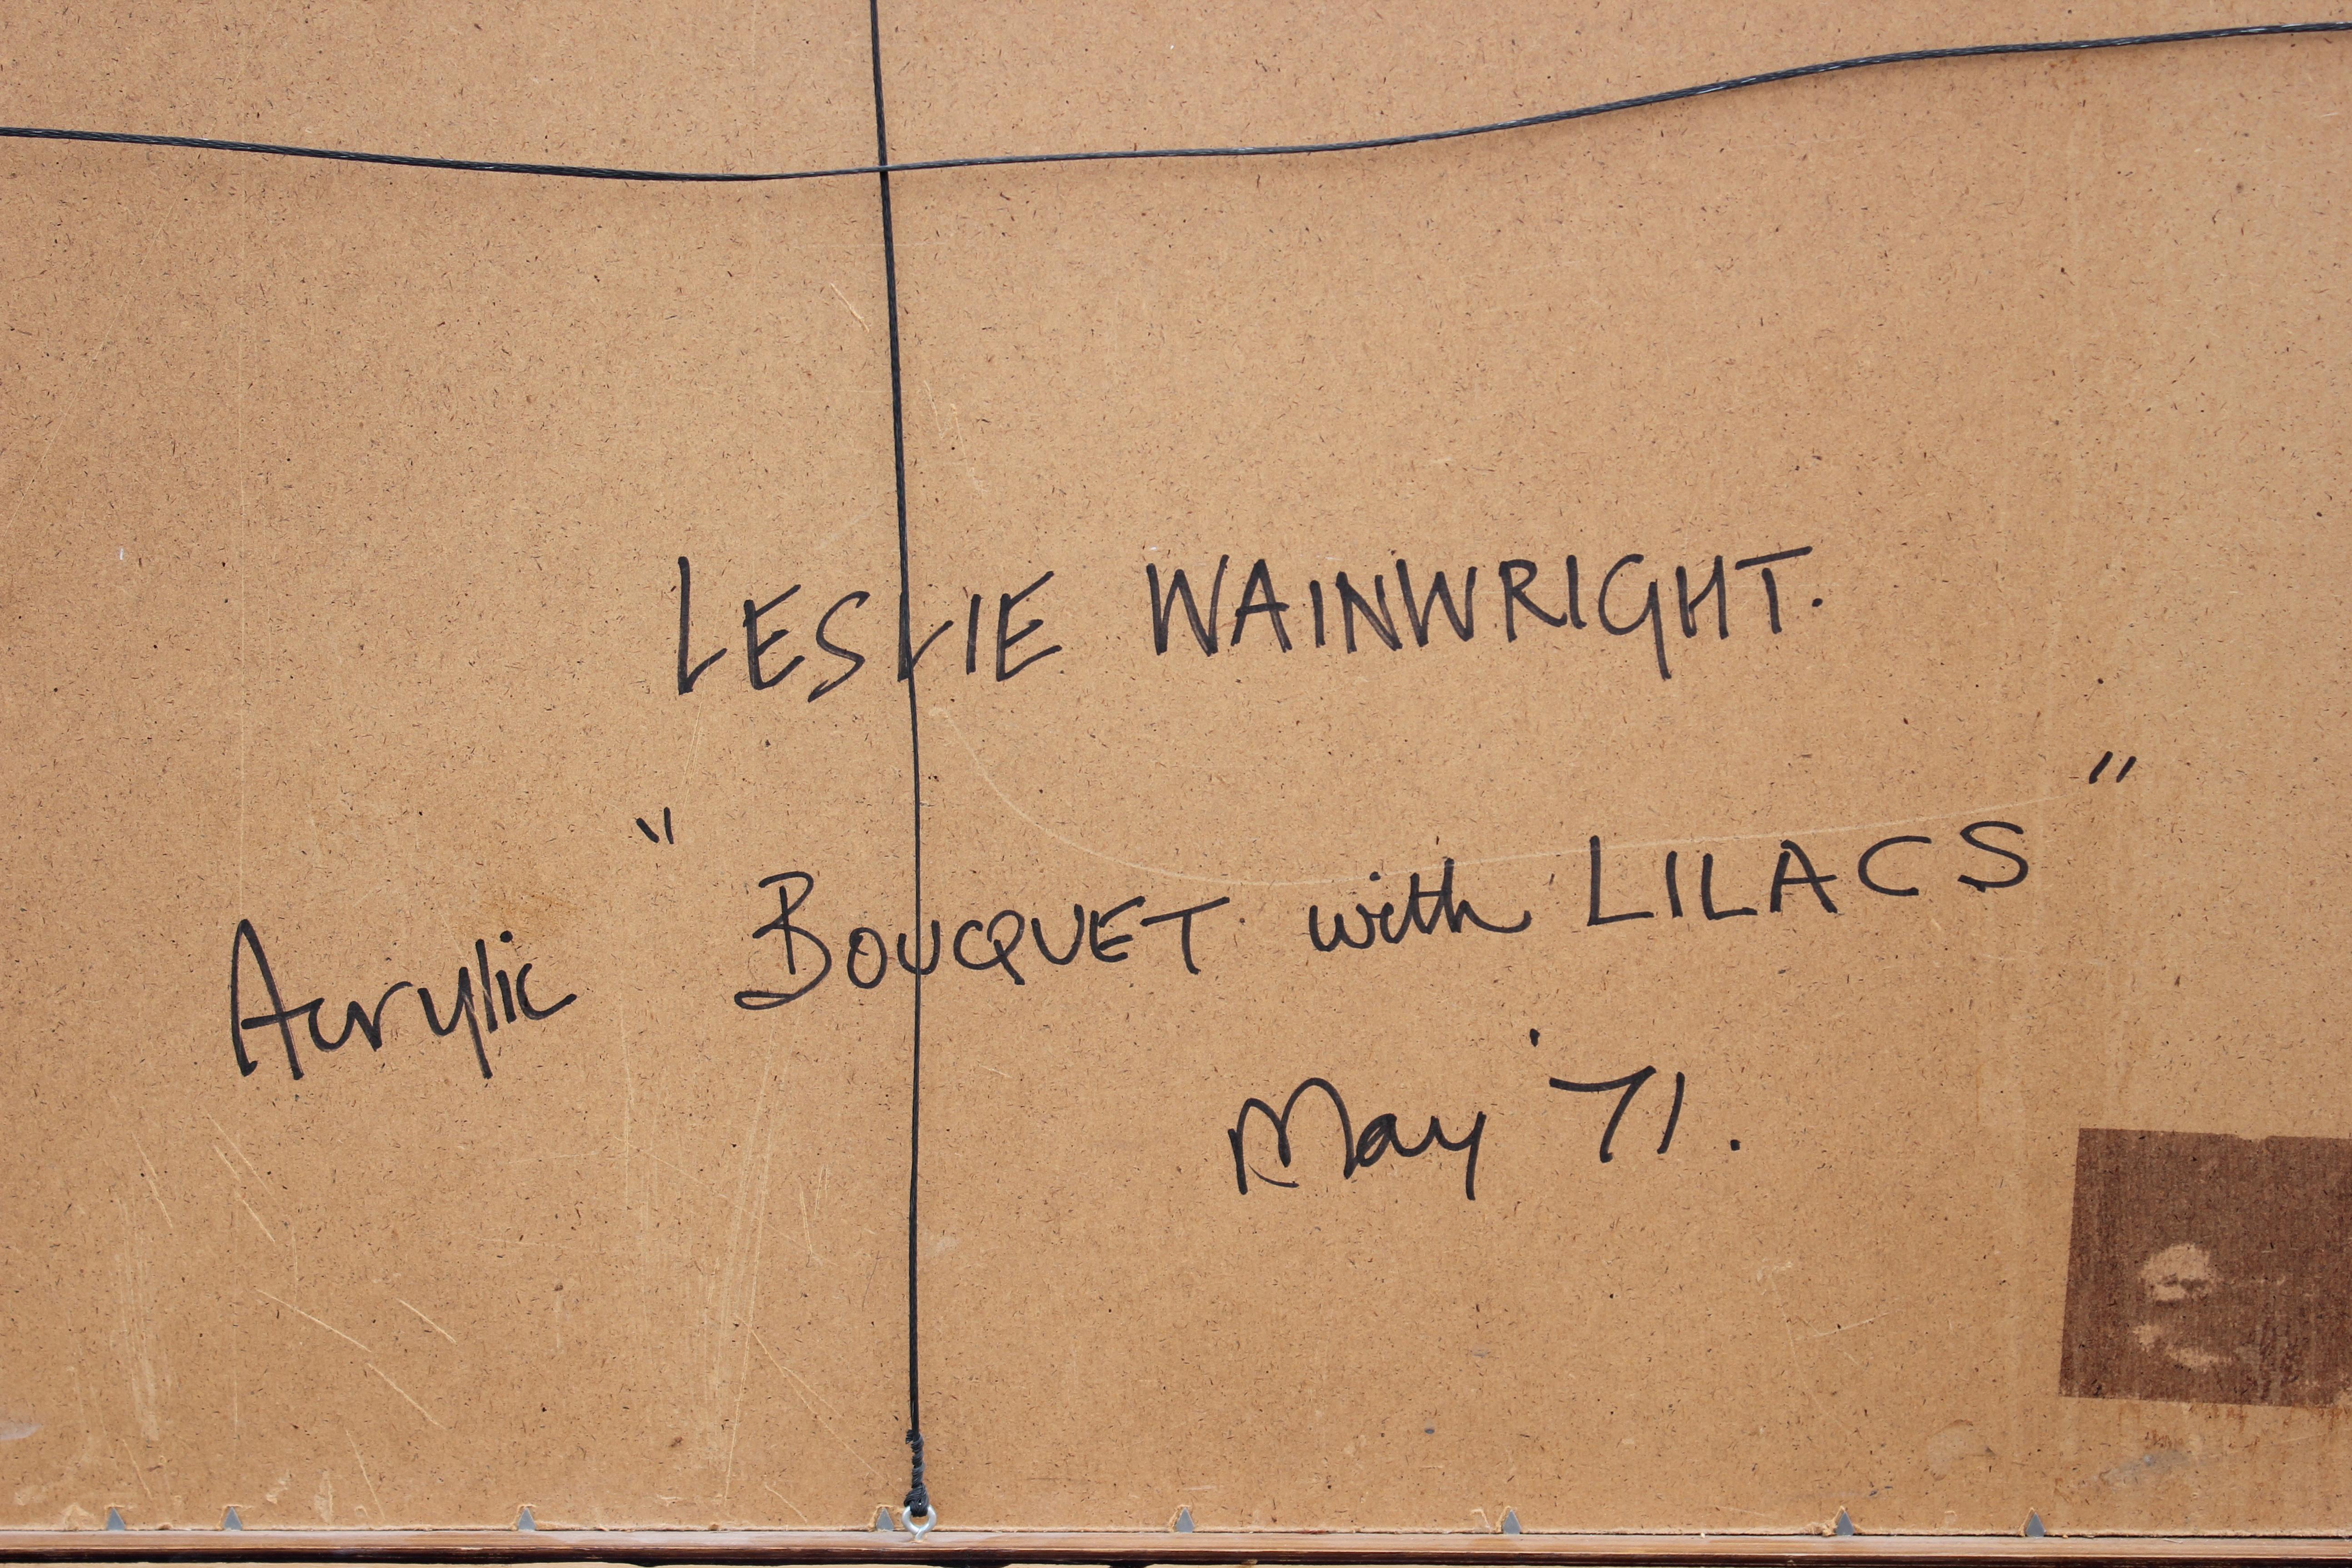 LESLIE WAINWRIGHT.
Acrylic "BOUCQUET with LILACS"
May '71.